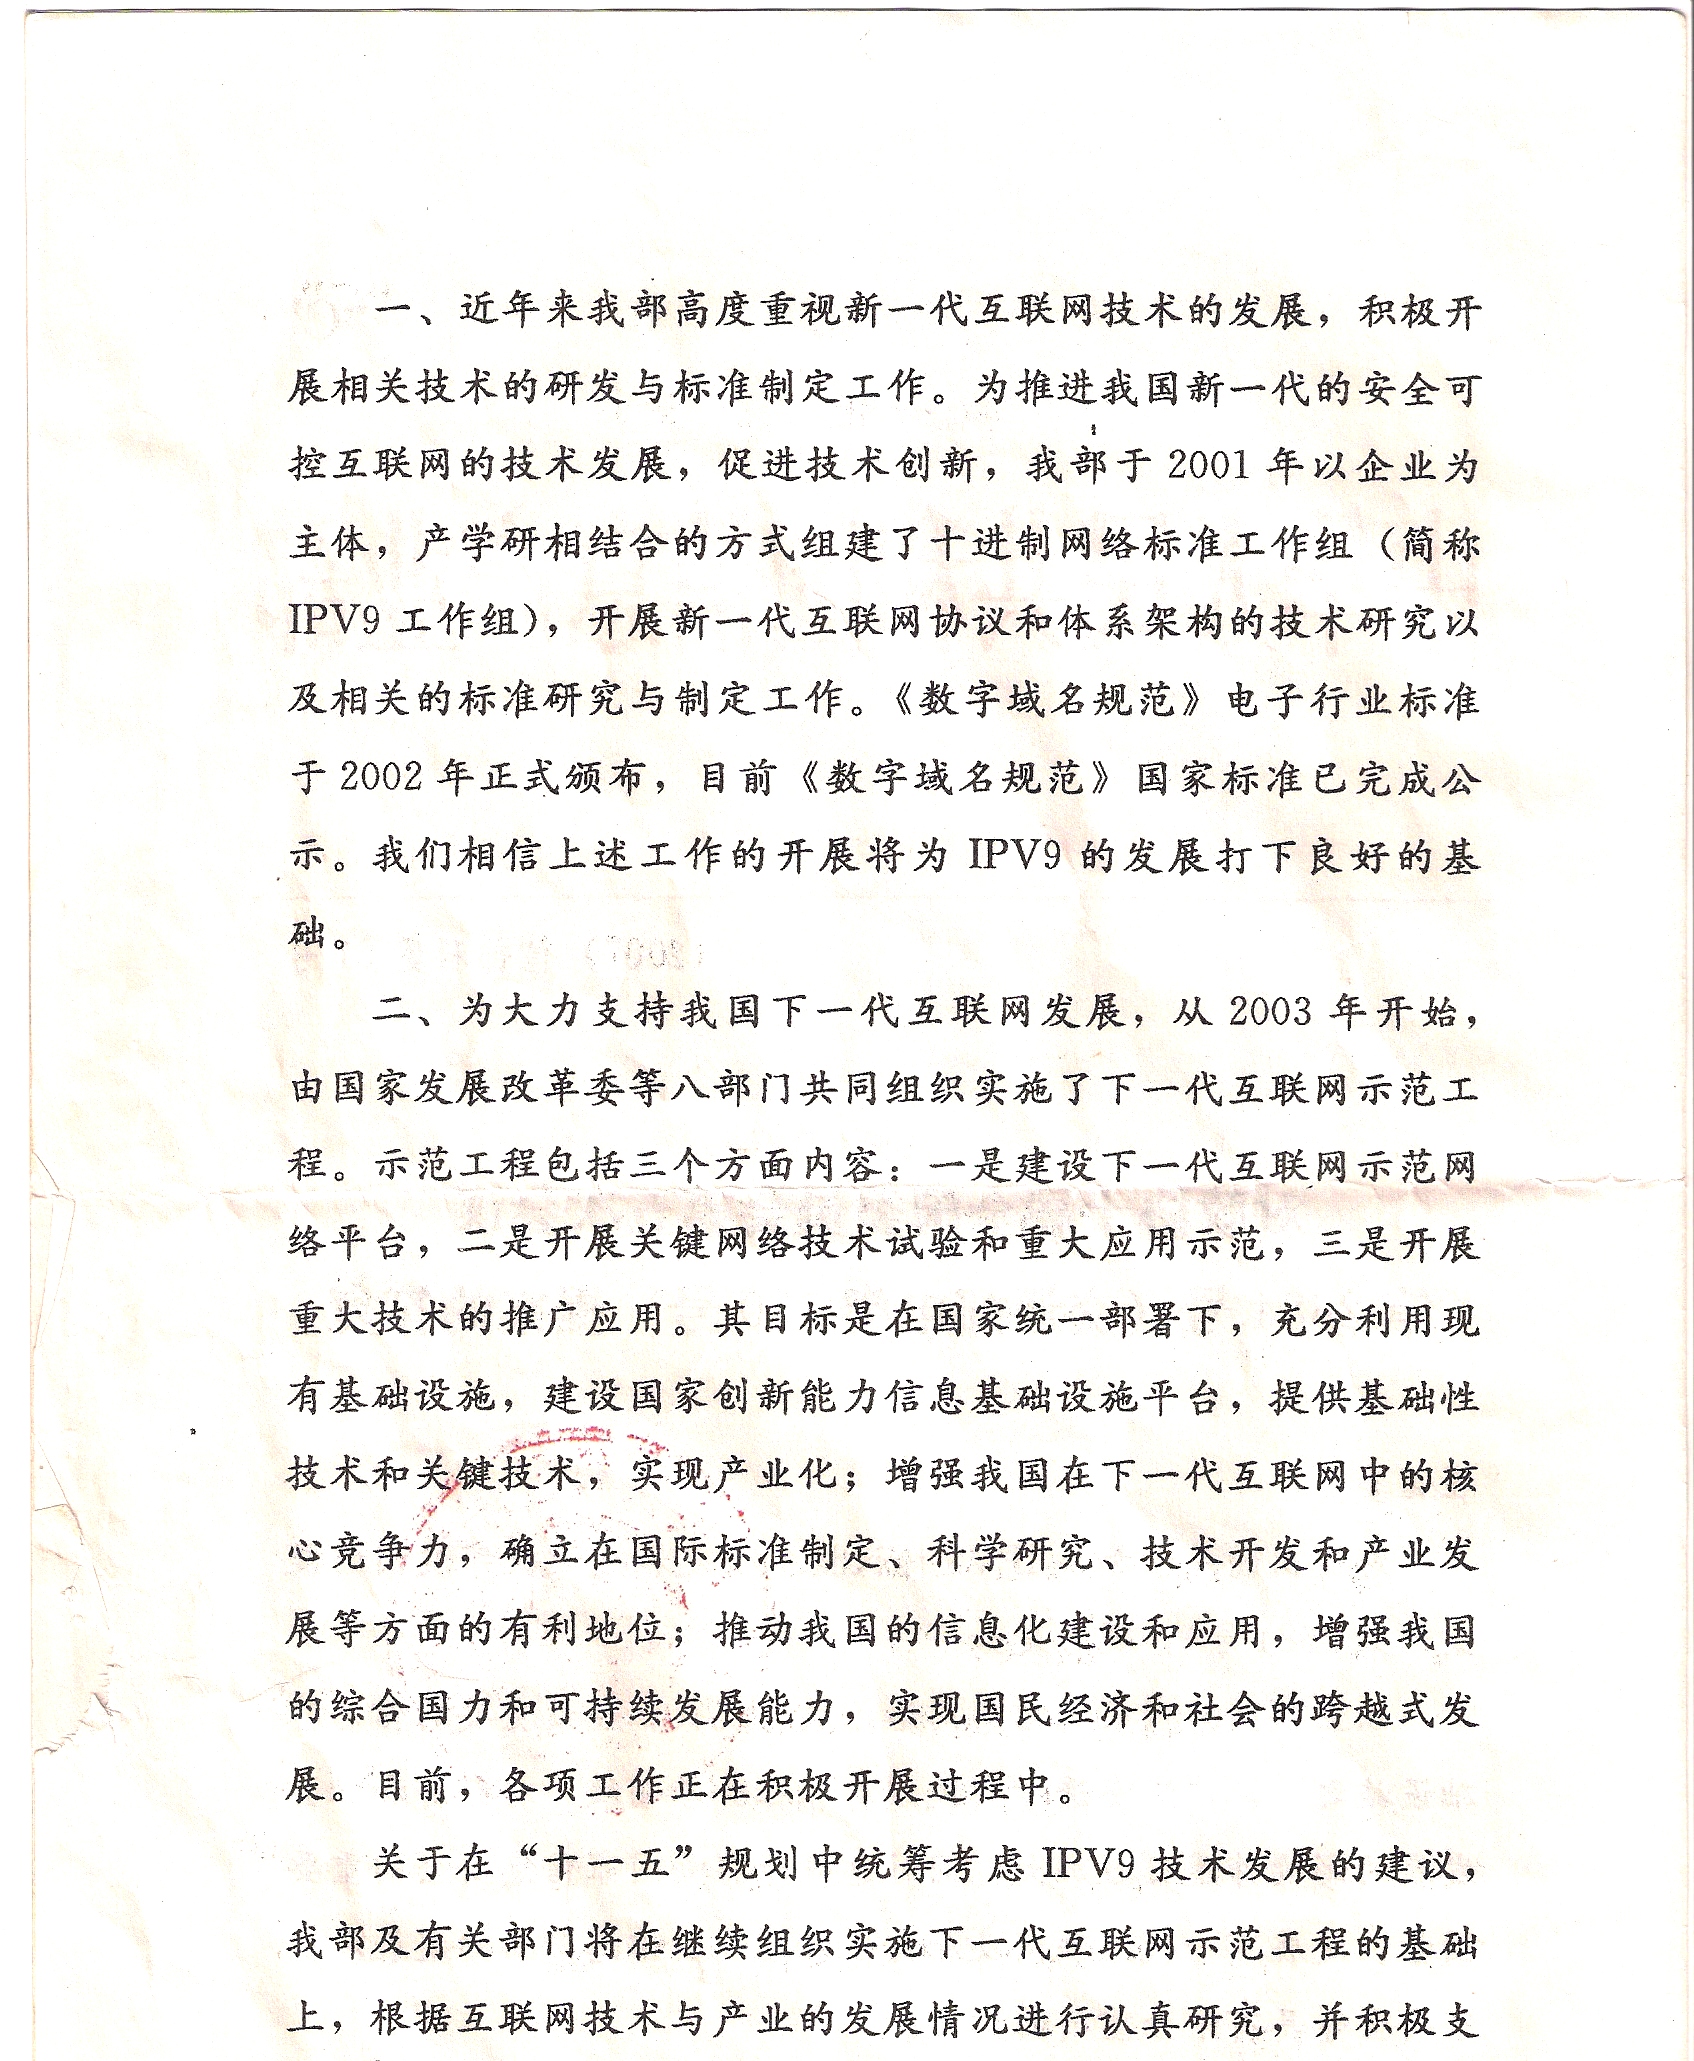 一、近年来我部高度重视新一代互联网技术的发展，积极开
展相关技术的研发与标准制定工作。为推进我国新一代的安全可
控互联网的技术发展，促进技术创新，我部于 2001 年以企业为
主体，产学研相结合的方式组建了十进制网络标准工作组（简称
IPV9 工作组），开展新一代互联网协议和体系架构的技术研究以
及相关的标准研究与制定工作。《数字域名规范》电子行业标准
于 2002 年正式颁布，目前《数字域名规范》国家标准已完成公
示。我们相信上述工作的开展将为 IPV9 的发展打下良好的基
础。
二、为大力支持我国下一代互联网发展，从 2003 年开始，
由国家发展改革委等八部门共同组织实施了下一代互联网示范工
程。示范工程包括三个方面内容：一是建设下一代互联网示范网
络平台，二是开展关键网络技术试验和重大应用示范，三是开展
重大技术的推广应用。其目标是在国家统一部署下，充分利用现
有基础设施，建设国家创新能力信息基础设施平台，提供基础性
技术和关键技术，实现产业化；增强我国在下一代互联网中的核
心竞争力，确立在国际标准制定、科学研究、技术开发和产业发
展等方面的有利地位；推动我国的信息化建设和应用，增强我国
的综合国力和可持续发展能力，实现国民经济和社会的跨越式发
展。目前，各项工作正在积极开展过程中。
关于在“十一五”规划中统筹考虑 IPV9 技术发展的建议，
我部及有关部门将在继续组织实施下一代互联网示范工程的基础
上，根据互联网技术与产业的发展情况进行认真研究，并积极支